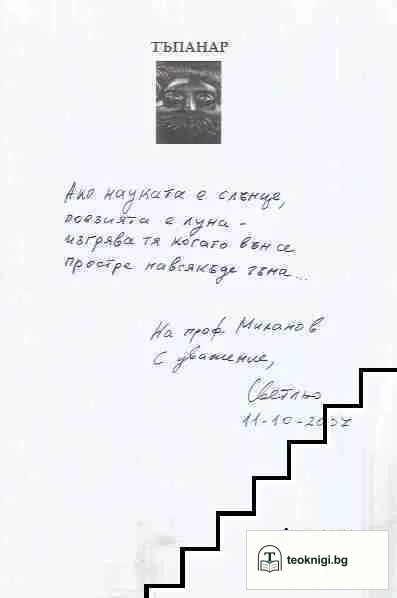 ТЪПАНАР
Ако науката е слънце,
поезията е луна -
изгрява тя когато вън се
простре навсякъде тъма...
На проф. Миланов
С уважение,
Светльо
11-10-2007
teoknigi.bg